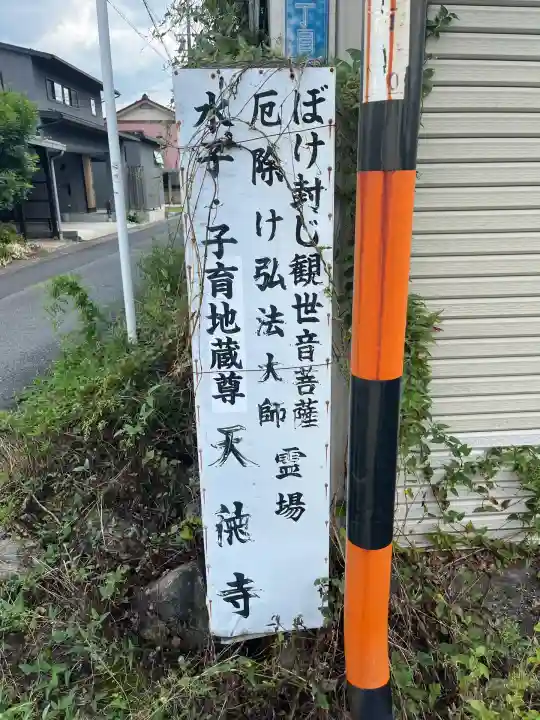 ぼけ封じ観世音菩薩 霊場
厄除け弘法大師
水子・子育地蔵尊 天徳寺
丁目